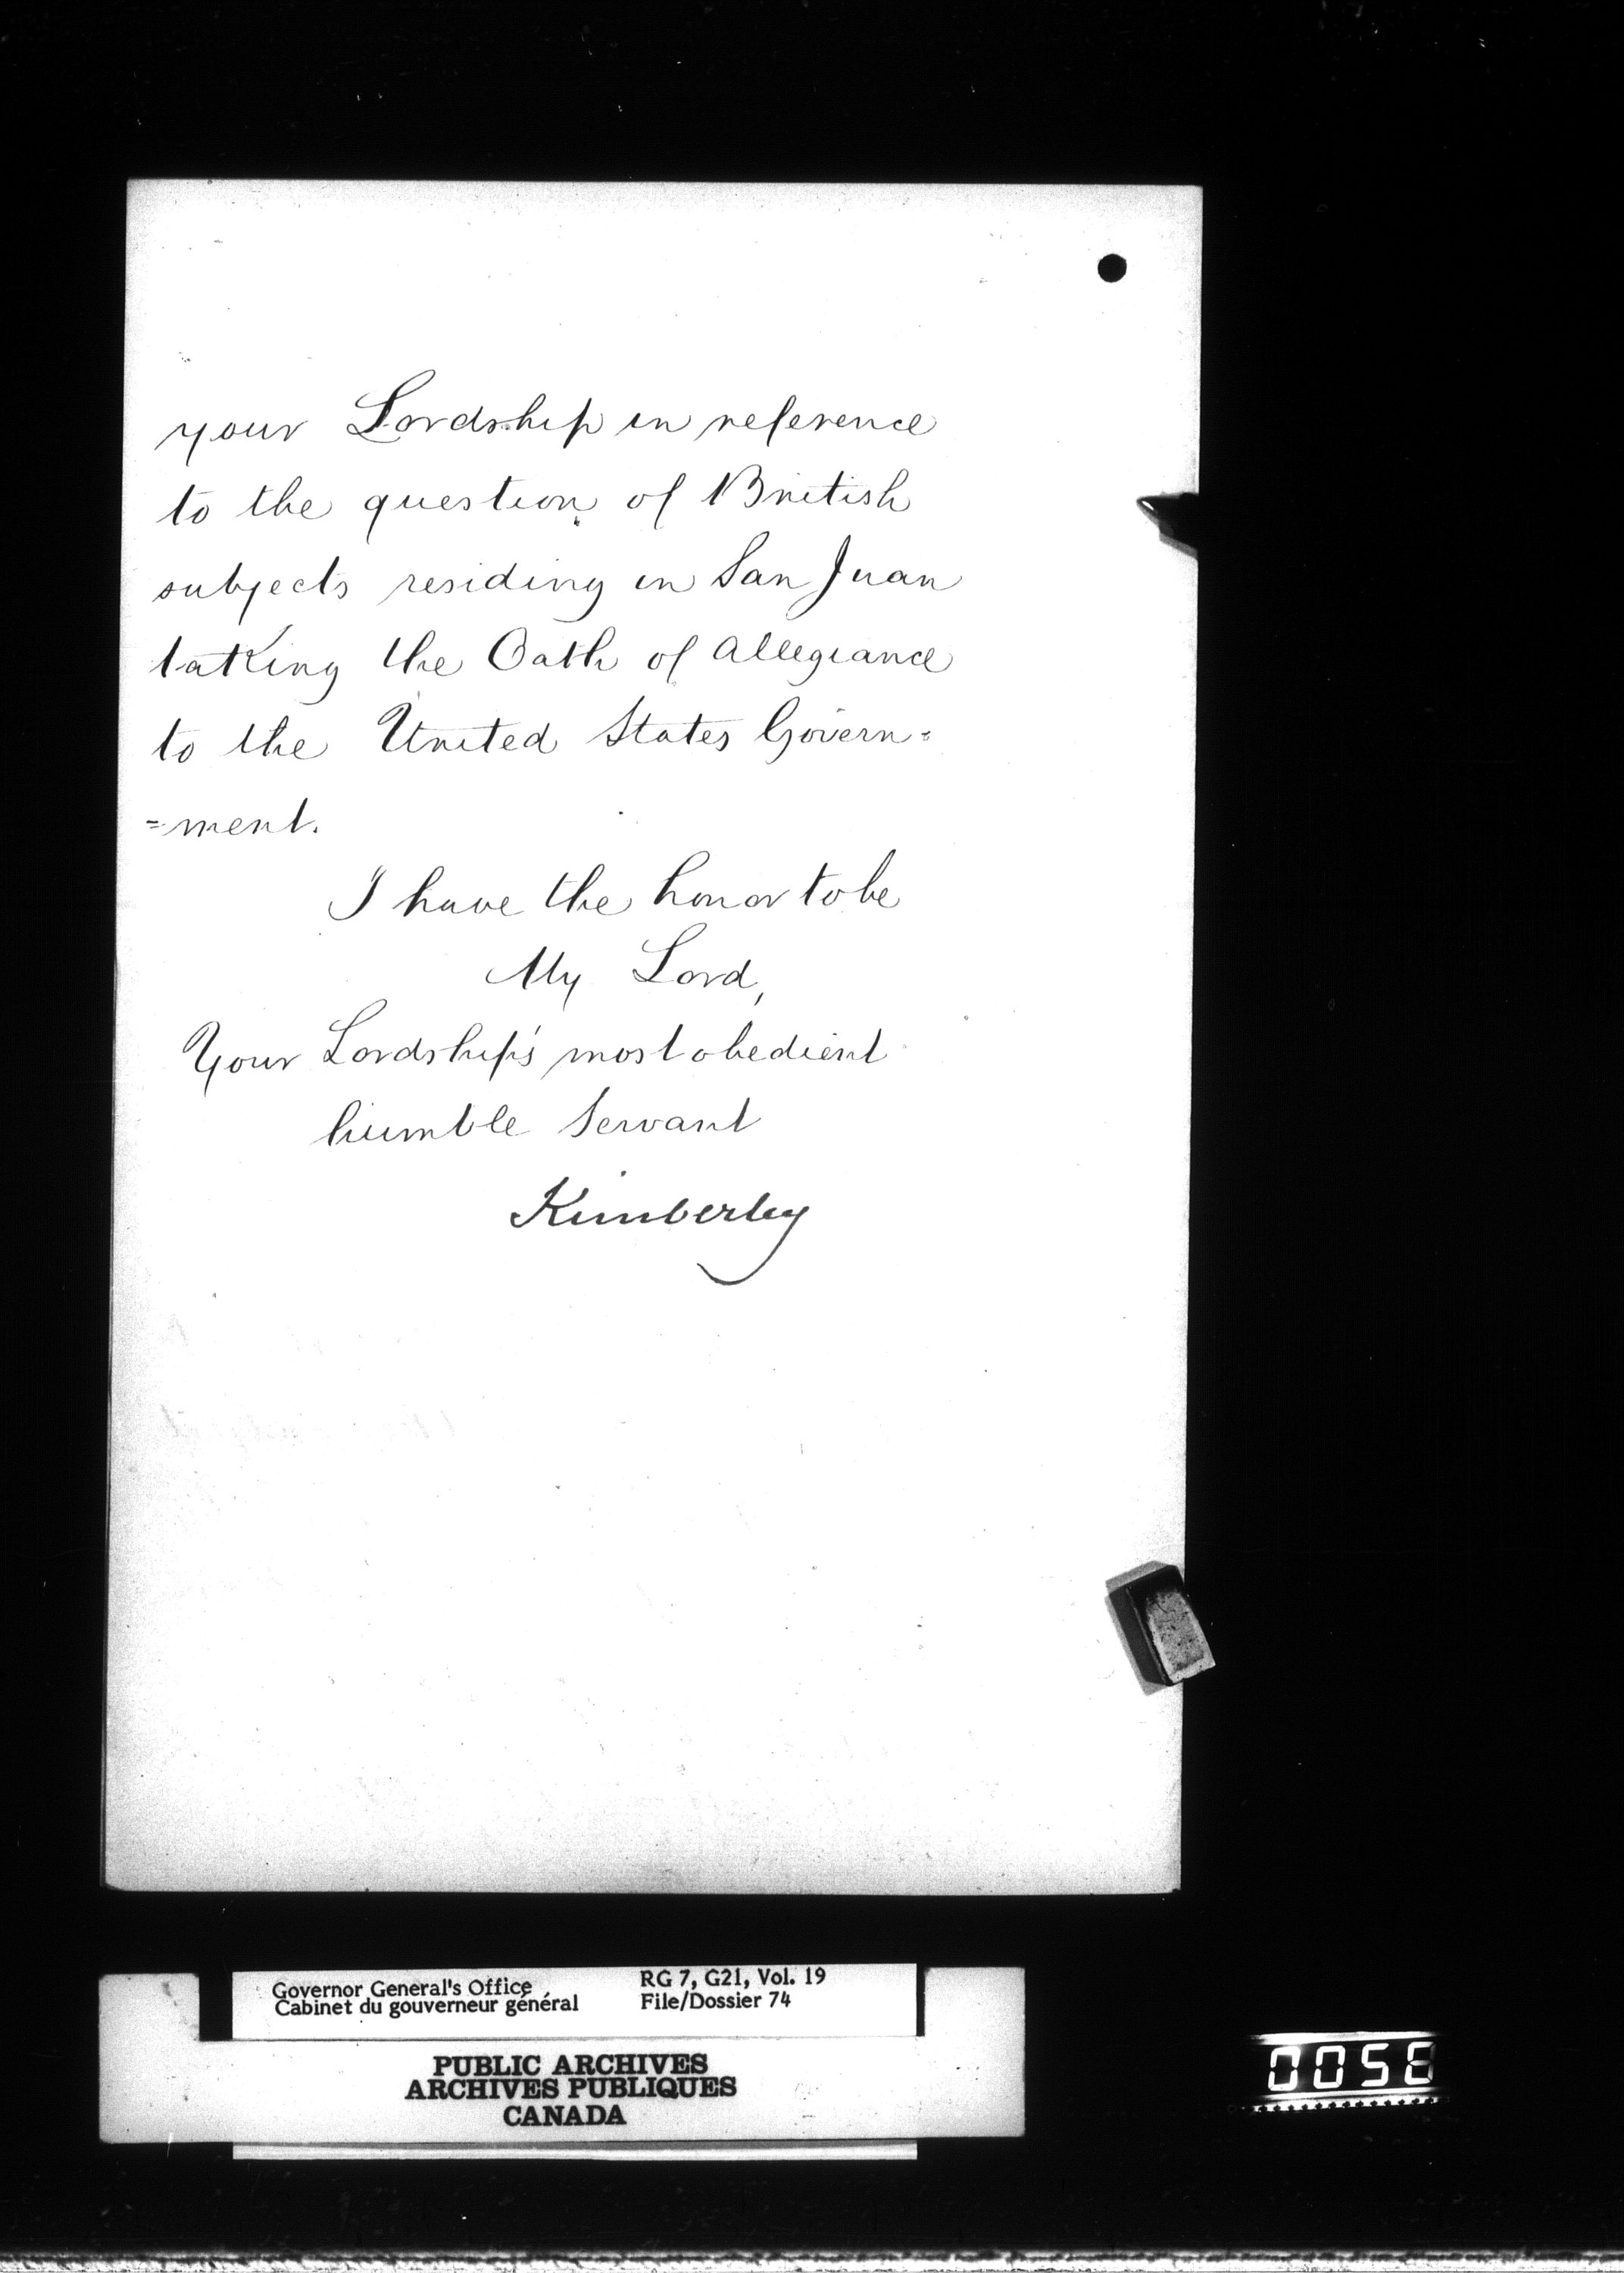 your Lordship in reference
to the question of British
subjects residing in San Juan
taking the Oath of Allegiance
to the United States Govern=
=ment.
I have the honor to be
My Lord,
Your Lordship's most obedient
humble Servant
Kimberley
Governor General's Office
Cabinet du gouverneur général
RG 7, G21, Vol. 19
File/Dossier 74
PUBLIC ARCHIVES
ARCHIVES PUBLIQUES
CANADA